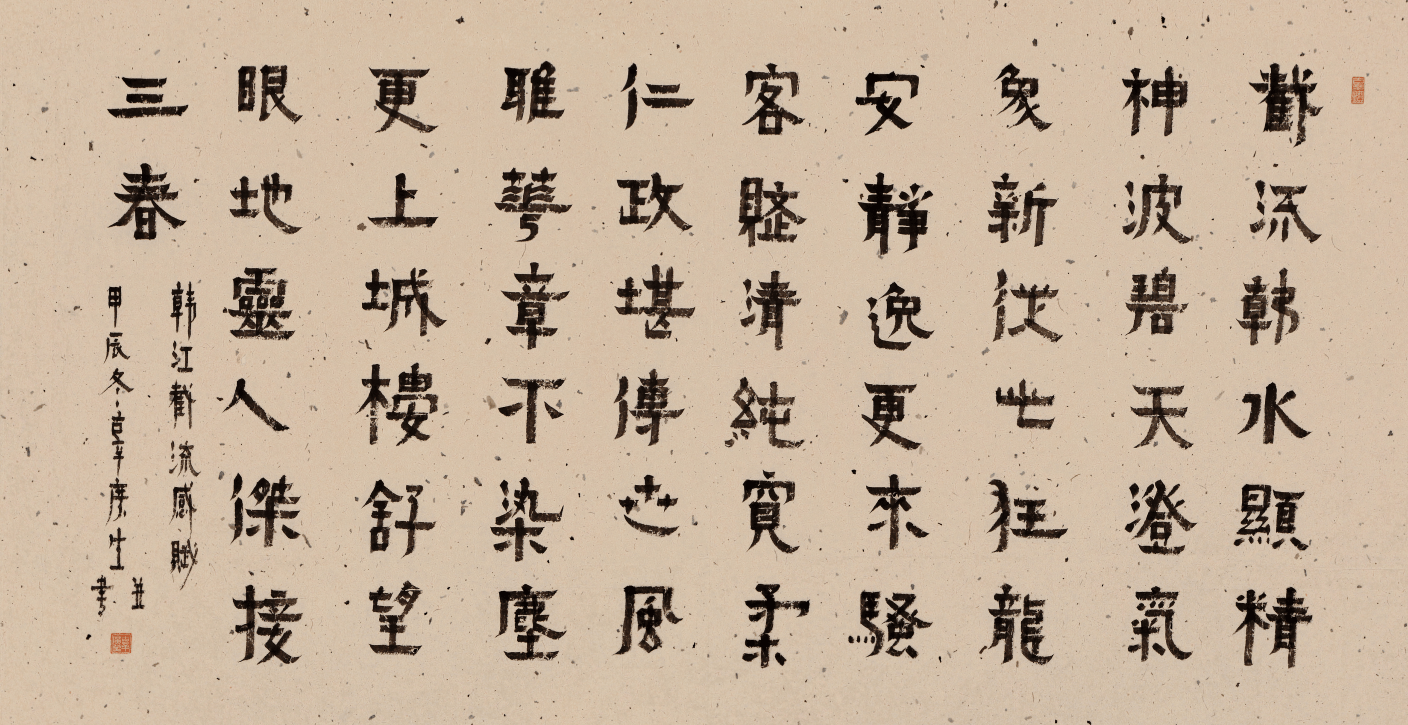 截流韓水顯精
神波碧天澄氣
象新從此狂龍
安靜逸更來騷
客賦清純寬柔
仁政堪傳世風
雅華章不染塵
更上城樓舒望
眼地靈人傑接
三春
韓江截流感賦
甲辰冬章生並書